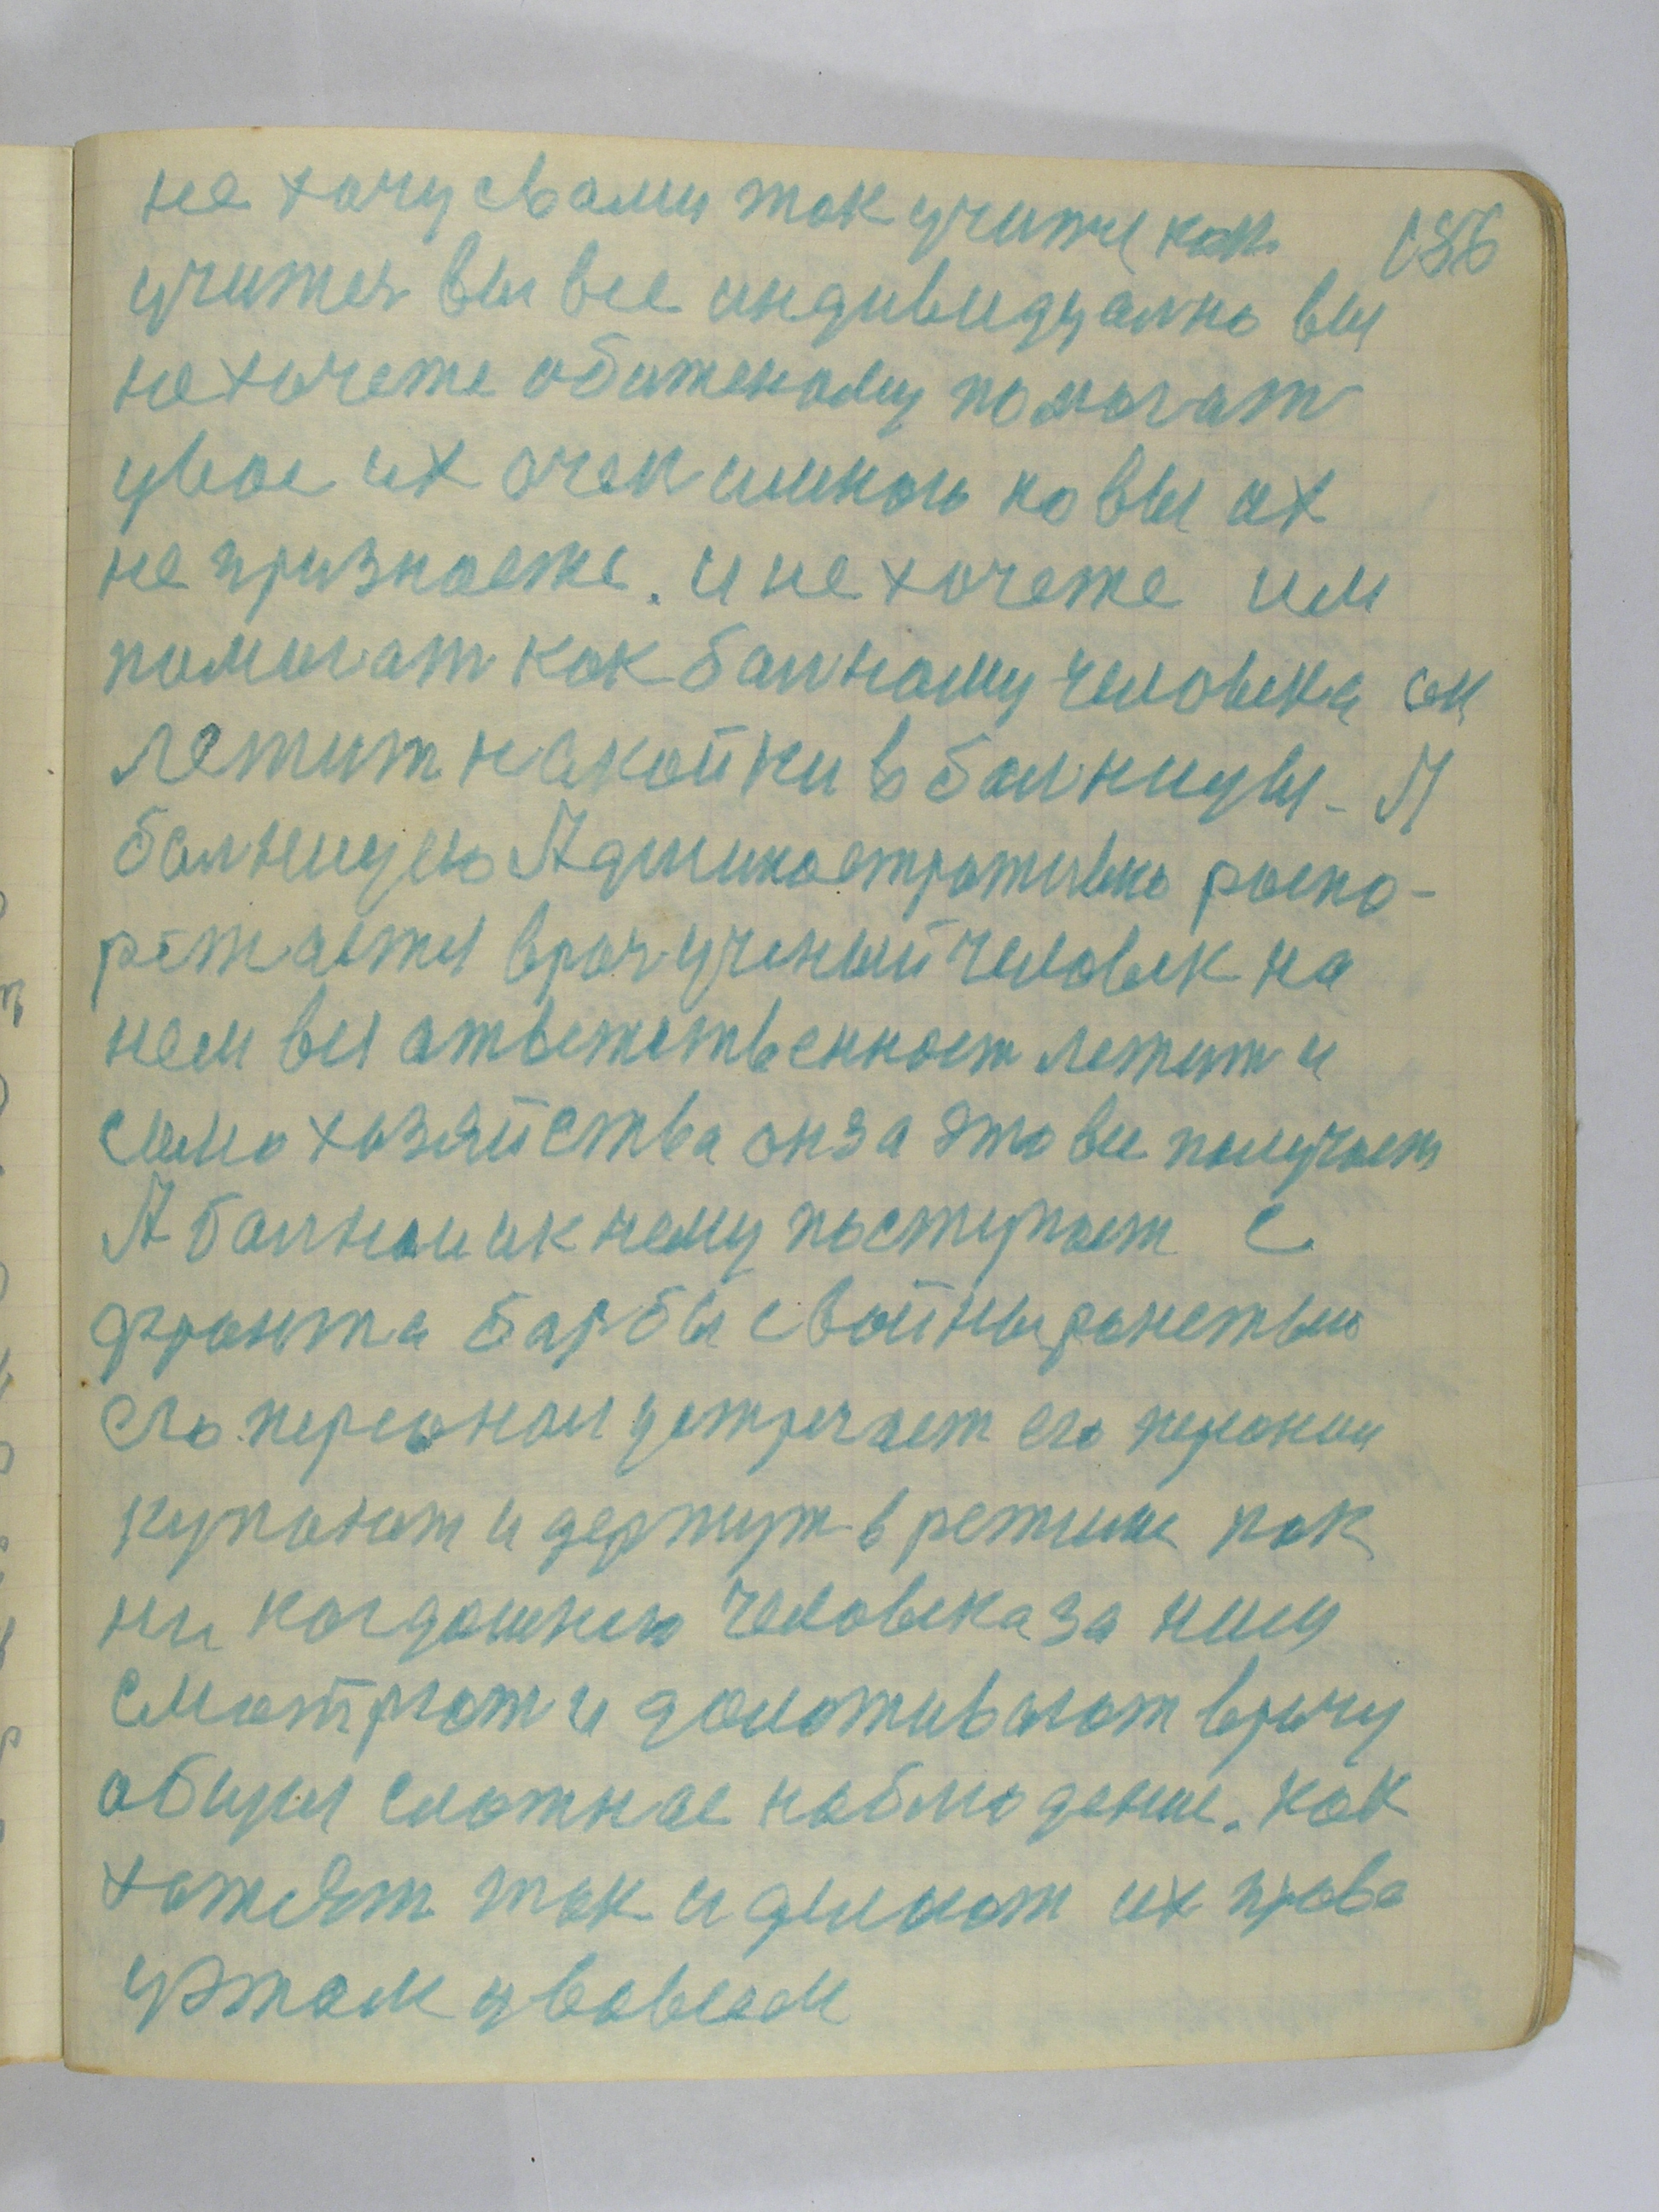 не хочу свами так учится как 186
учитея вы все индивидуално вы
не хочете обиженому помогат
увас их очен много но вы их
не признаете. и не хочете им
помогат как балному человека он
лежит на койки в балницы - А
балницею Администротивно распо-
режаетя врач ученый человек на
нем вся ответственност лежит и
само хозяйства он за это все получает
А балной ик нему поступает с
фронта барбы с войны
его персонал устречает его персонал
купають и держут в режими как
ни когдошнею человека за ним
смотрют и даложивають врачу
общея сложное наблюдение. как
хотят так и делают их права
у этом увовсем